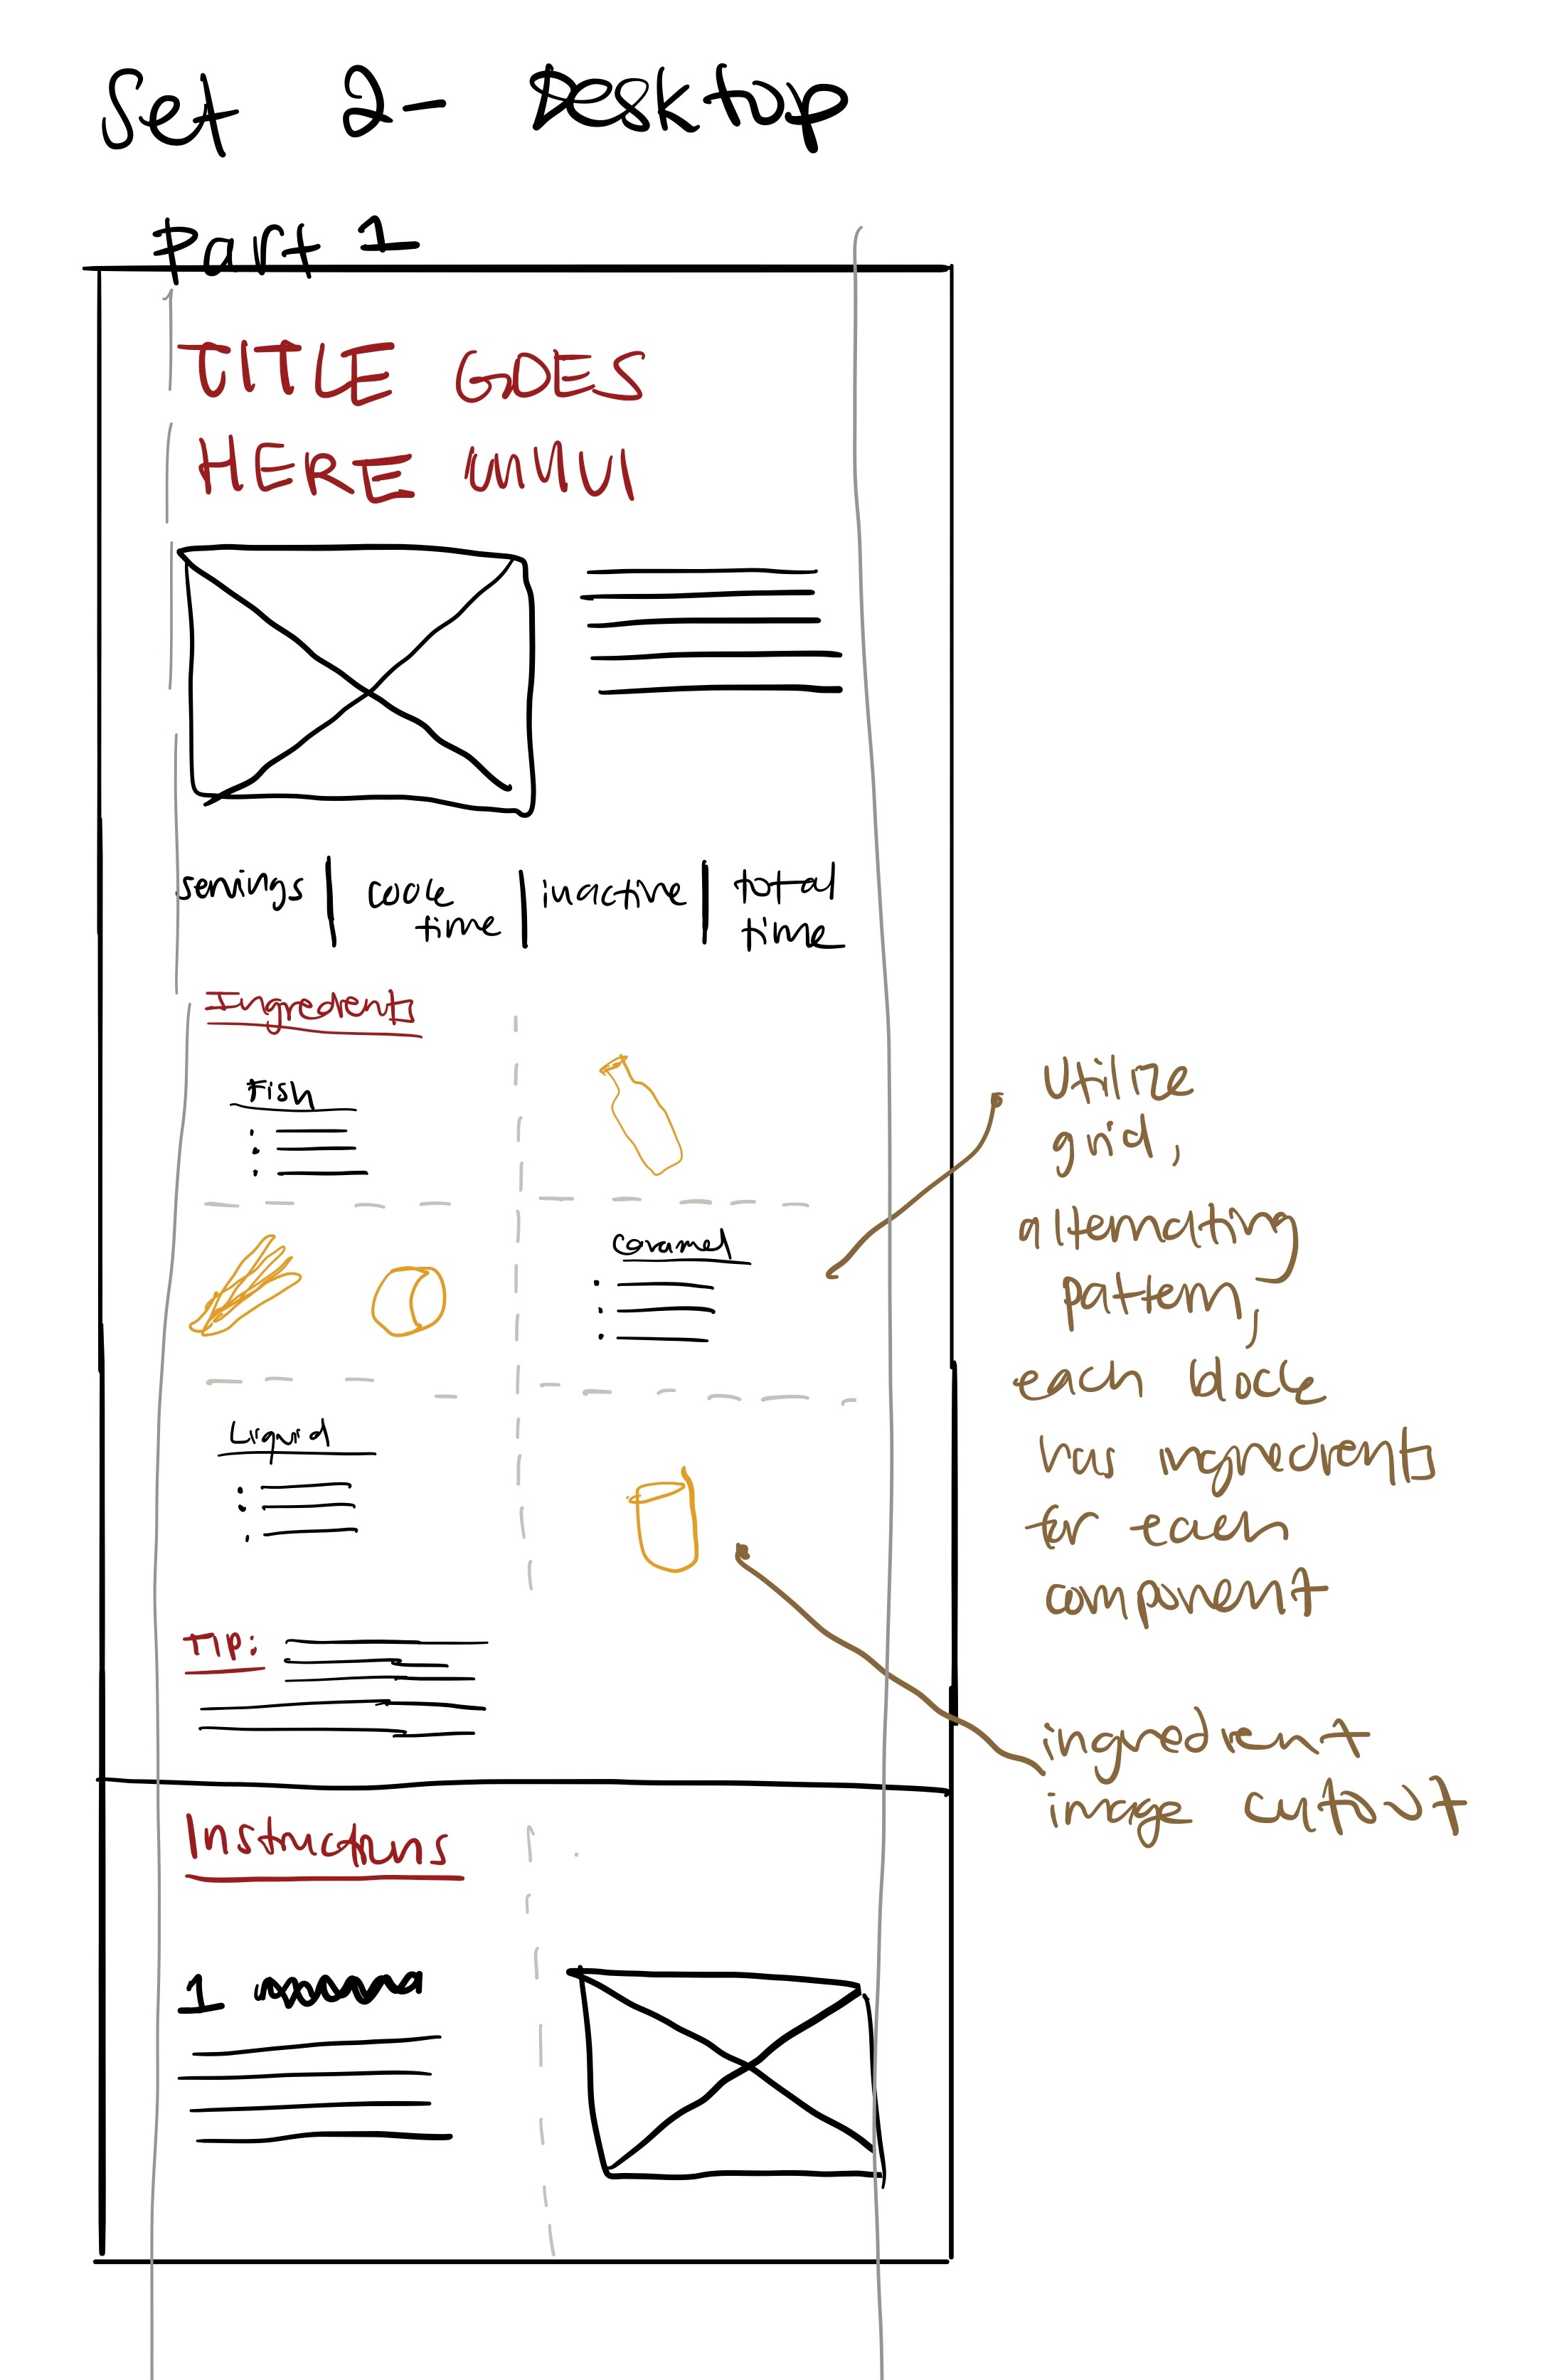 Set 2- Desktop
Part 1
TITLE GOES
HERE
servings | cook time | inactive | total time
Ingredients
Fish
Caramel
Liquid
TIP:
Instructions
1
Utilize
grid,
alternating
pattern,
each block
has ingredients
for each
component
ingredient
image cutout